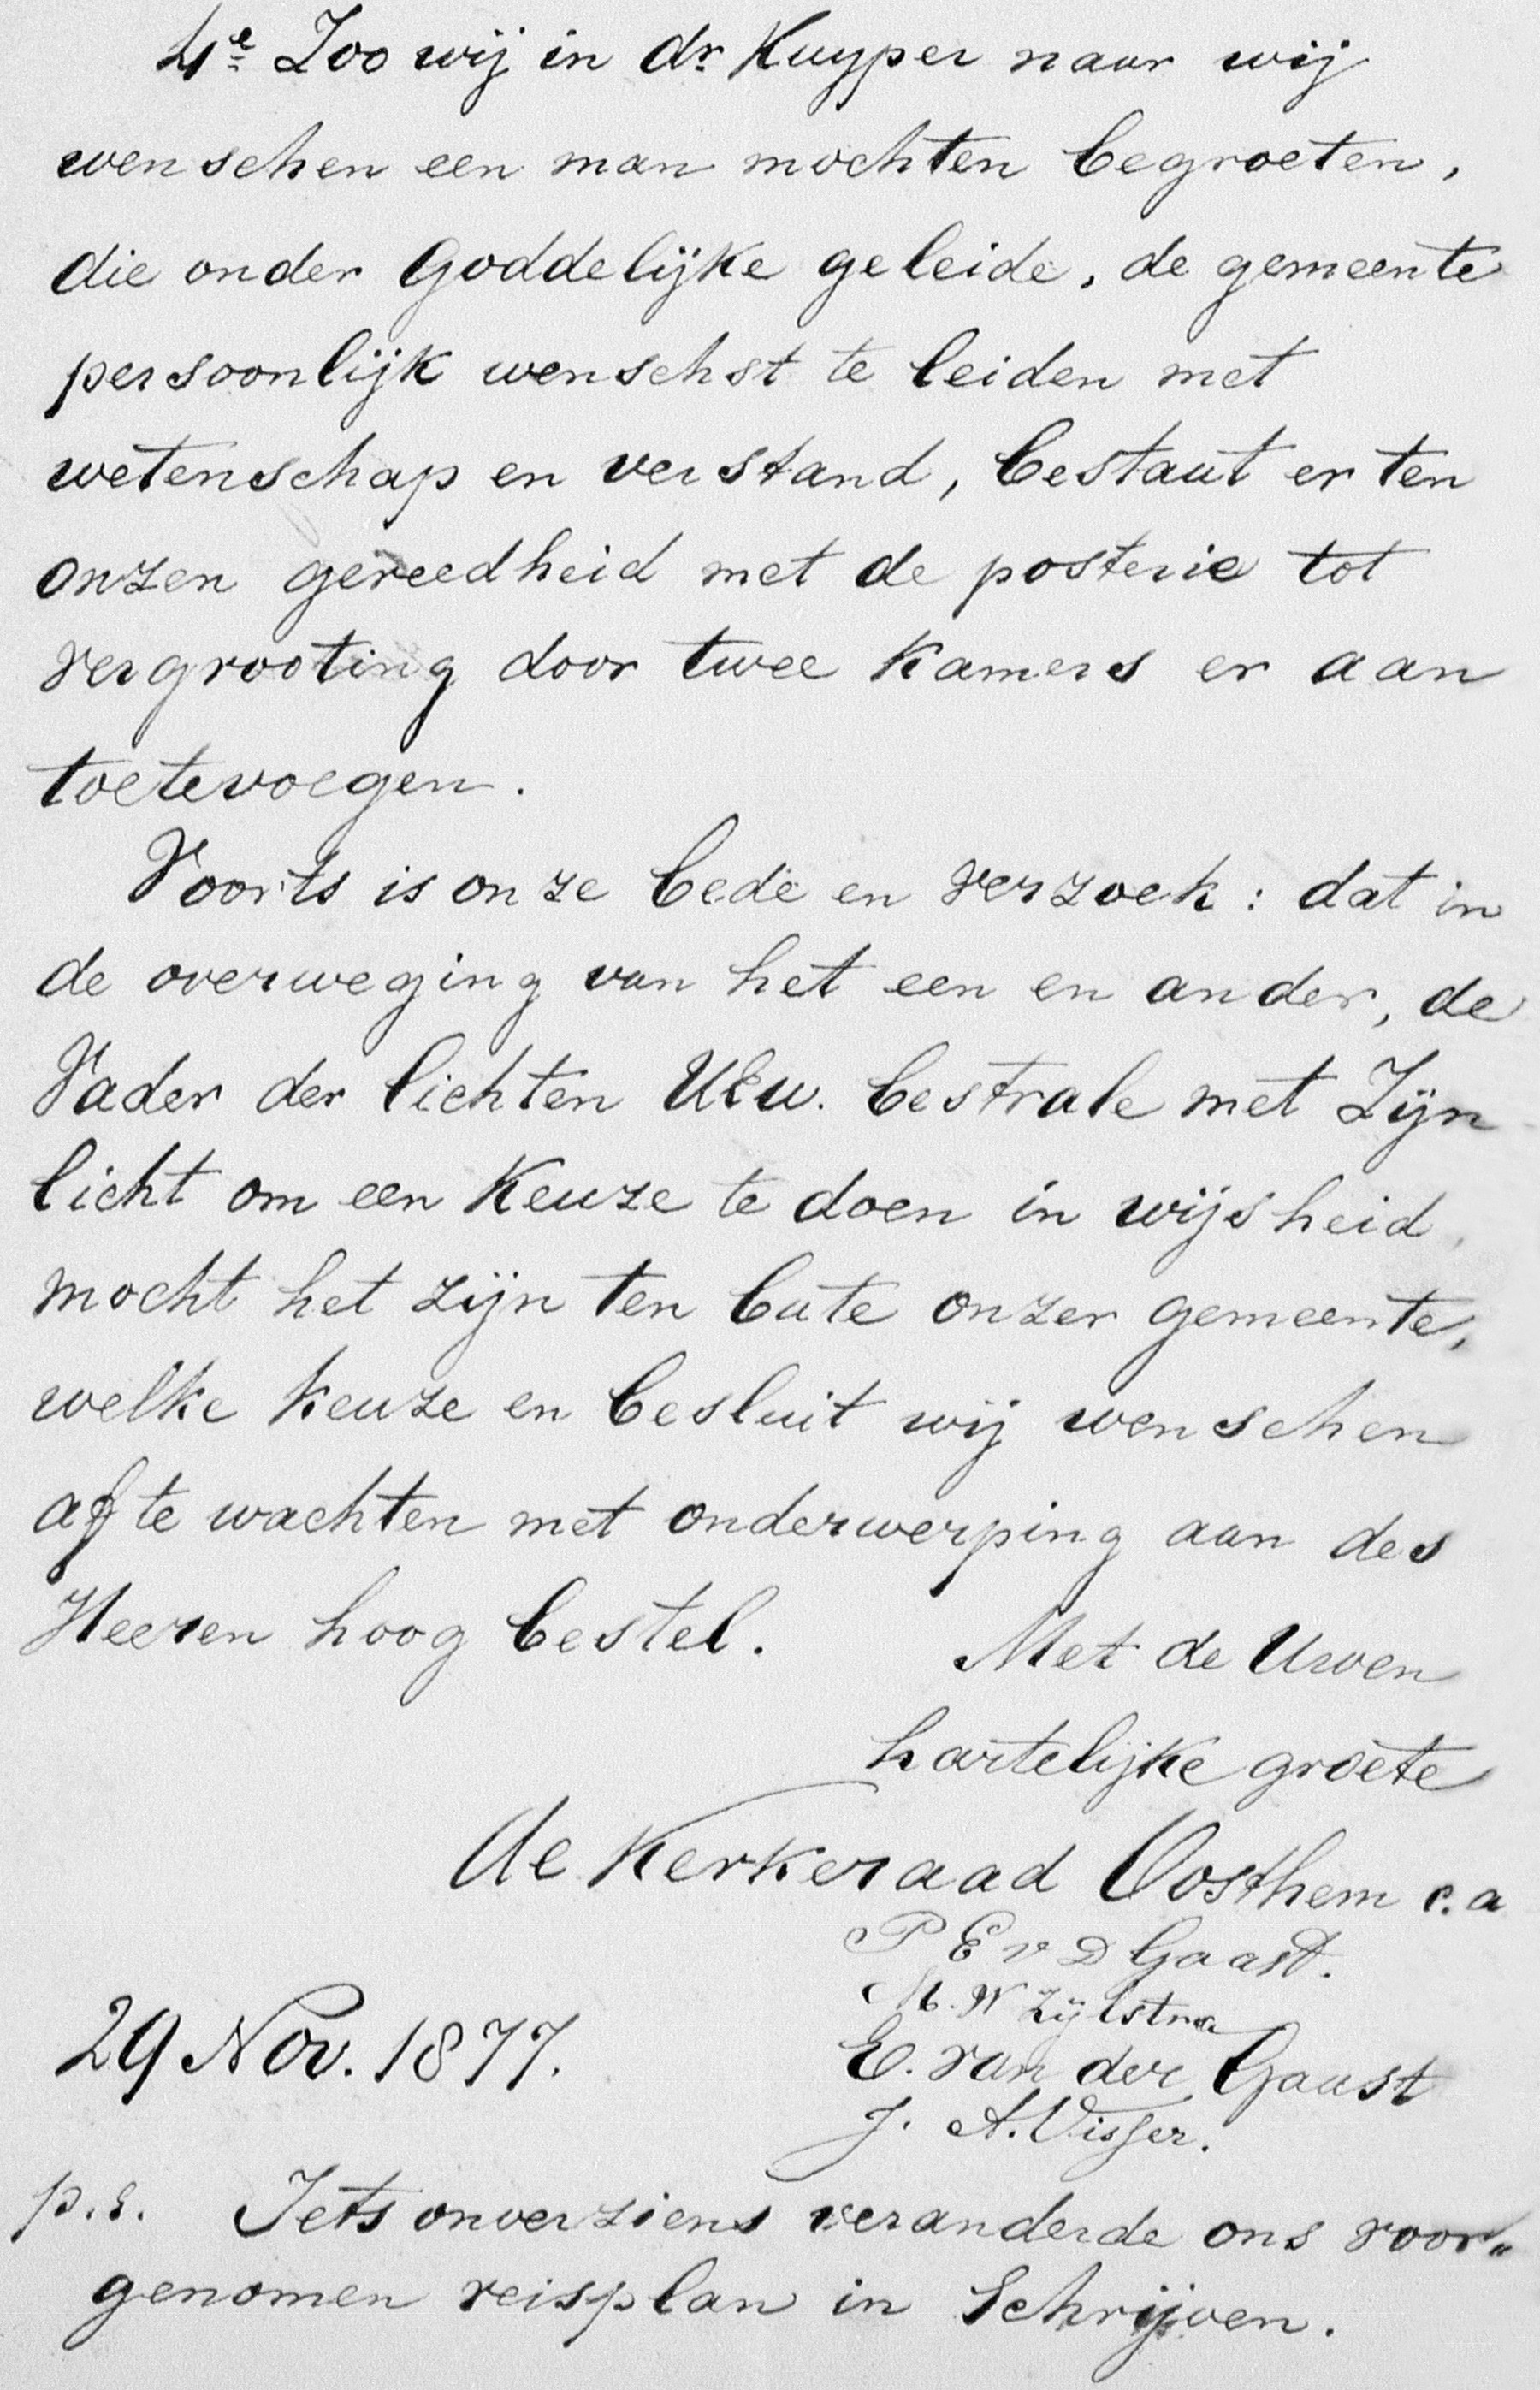 4e Zoo wij in dr. Kuyper naar wij
wenschen een man mochten begroeten,
die onder Goddelijke geleide, de gemeente
persoonlijk wenschst te leiden met
wetenschap en verstand, bestaat er ten
onzen gereedheid met de posterie tot
vergrooting door twee Kamers er aan
toetevoegen.
Voorts is onze bede en verzoek: dat in
de overweging van het een en ander, de
Vader der lichten UEw. bestrale met Zijn
licht om een Keuze te doen in wijsheid,
mocht het zijn ten bate onzer gemeente,
welke keuze en besluit wij wenschen
af te wachten met onderwerping aan des
Heeren hoog bestel. Met de Uwen
hartelijke groete
de Kerkeraad Oosthem c.a
P E v D Gaast.
M. W Zijlstra
29 Nov. 1877. E. van der Gaast
J. A. Visser.
p.s. Iets onverziens veranderde ons voor„
genomen reisplan in Schrijven.